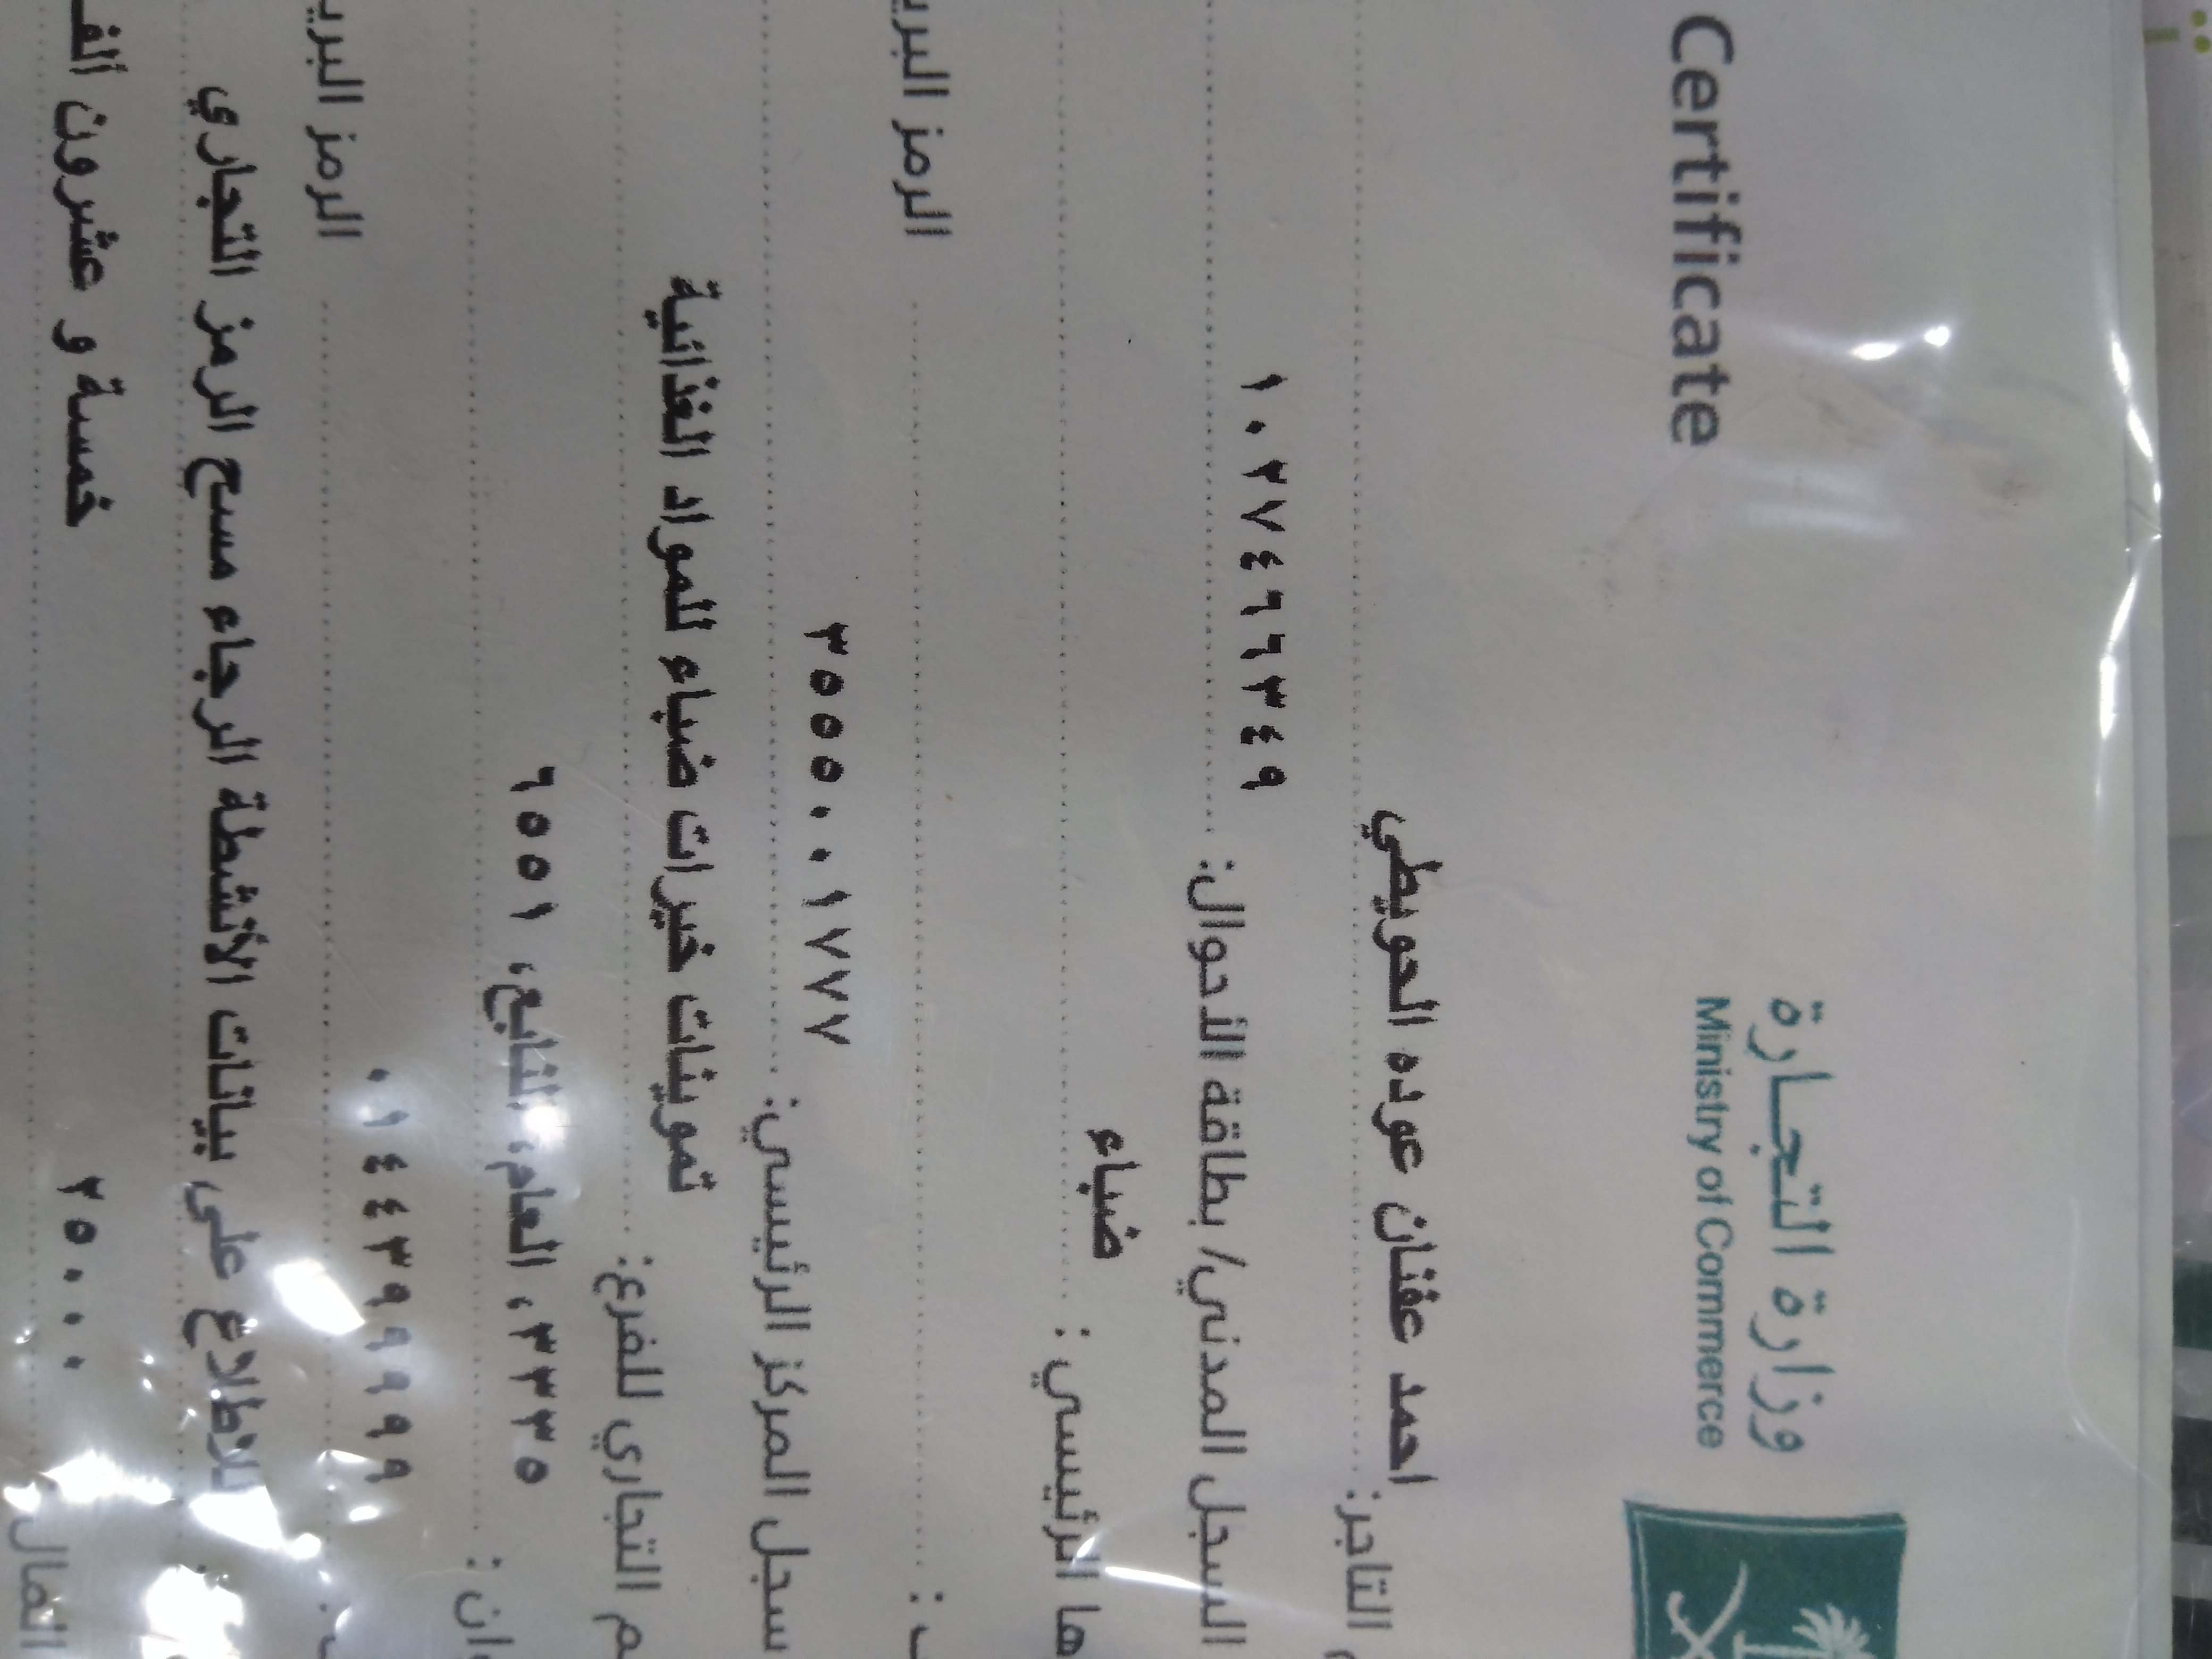 وزارة التجارة
Ministry of Commerce
Certificate
التاجر: احمد عفنان عوده الحويطي
السجل المدني/ بطاقة الأحوال: ١٠٢٧٤٦٦٣٤٩
ها الرئيسي : ضباء
الرمز البري
سجل المركز الرئيسي: ٣٥٥٥٠٠١٧٧٧
م التجاري للفرع: تموينات خيرات ضباء للمواد الغذائية
ان : ٣٣٣٥، العام، النابع، ٦٥٥١
٠١٤٤٣٩٩٩٩٩ الرمز البري
للاطلاع على بيانات الأنشطة الرجاء مسح الرمز التجاري
المال ٢٥٠٠٠ خمسة و عشرون الف